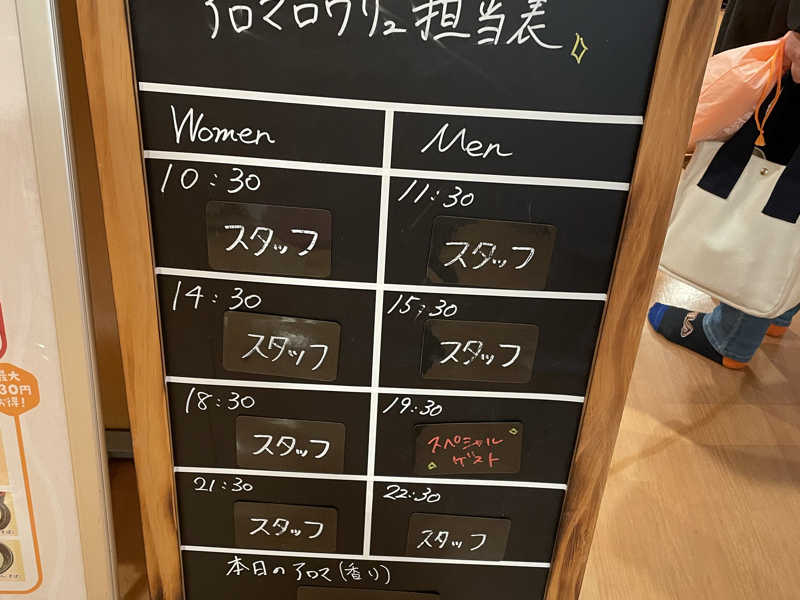 アロマロウリュ担当表
Women
Men
10:30
スタッフ
11:30
スタッフ
14:30
スタッフ
15:30
スタッフ
18:30
スタッフ
19:30
スペシャル
ゲスト
21:30
スタッフ
22:30
スタッフ
本日のアロマ(香り)
最大
30円
お得!